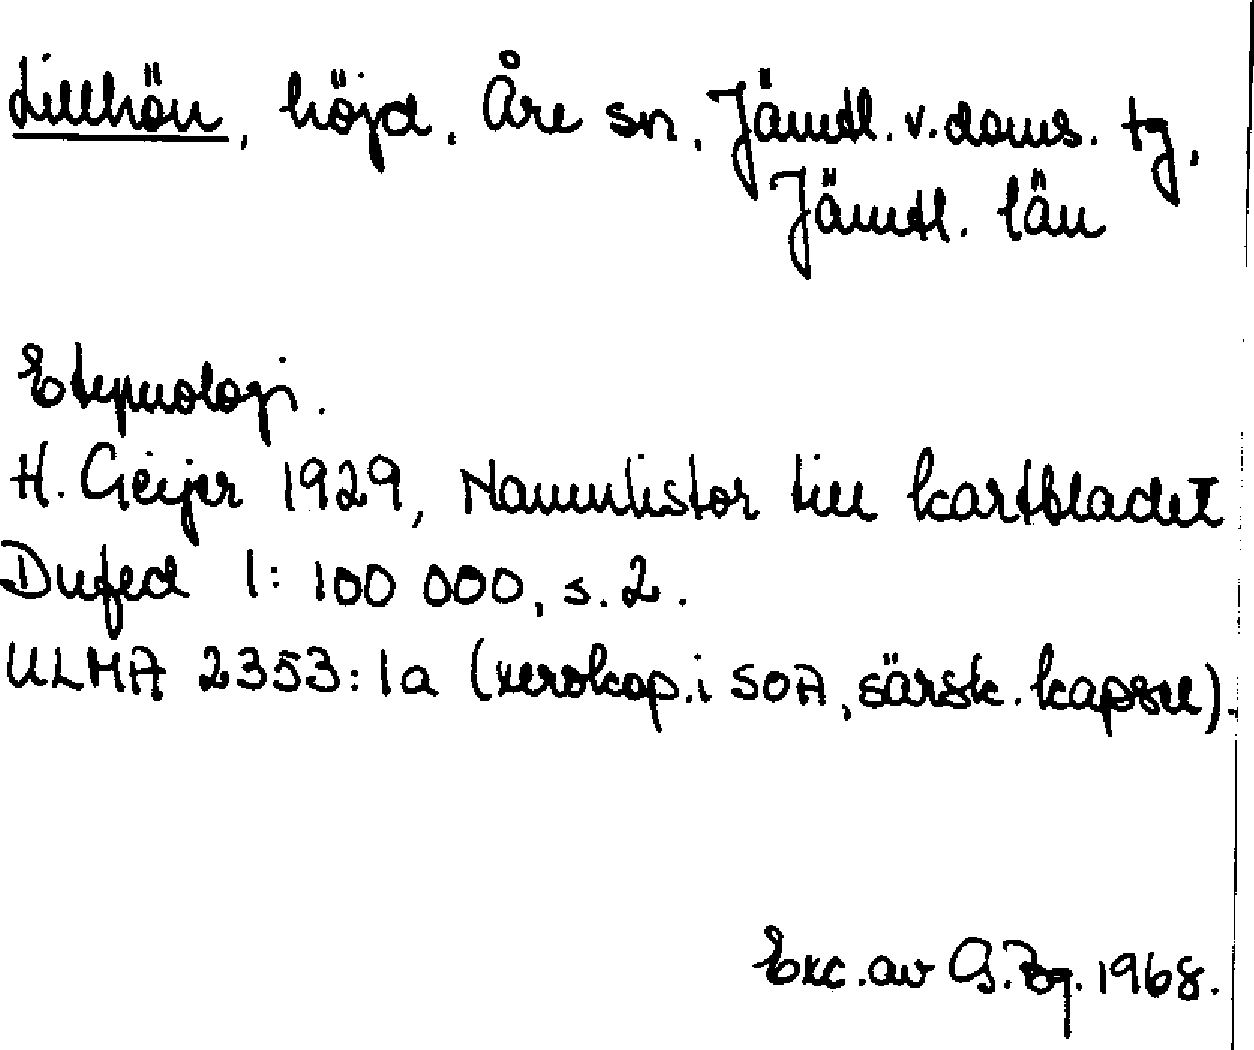 Lillhön, höjd. Åre sn, Jämtl. v. doms. tg,
Jämtl. län
Etymologi.
H. Geijer 1929, Namnlistor till kartbladet
Dufed 1:100 000, s. 2.
ULMA 2353:1a (xerokop. i SOA, särsk. kapsel).
Exc. av G. Bg. 1968.